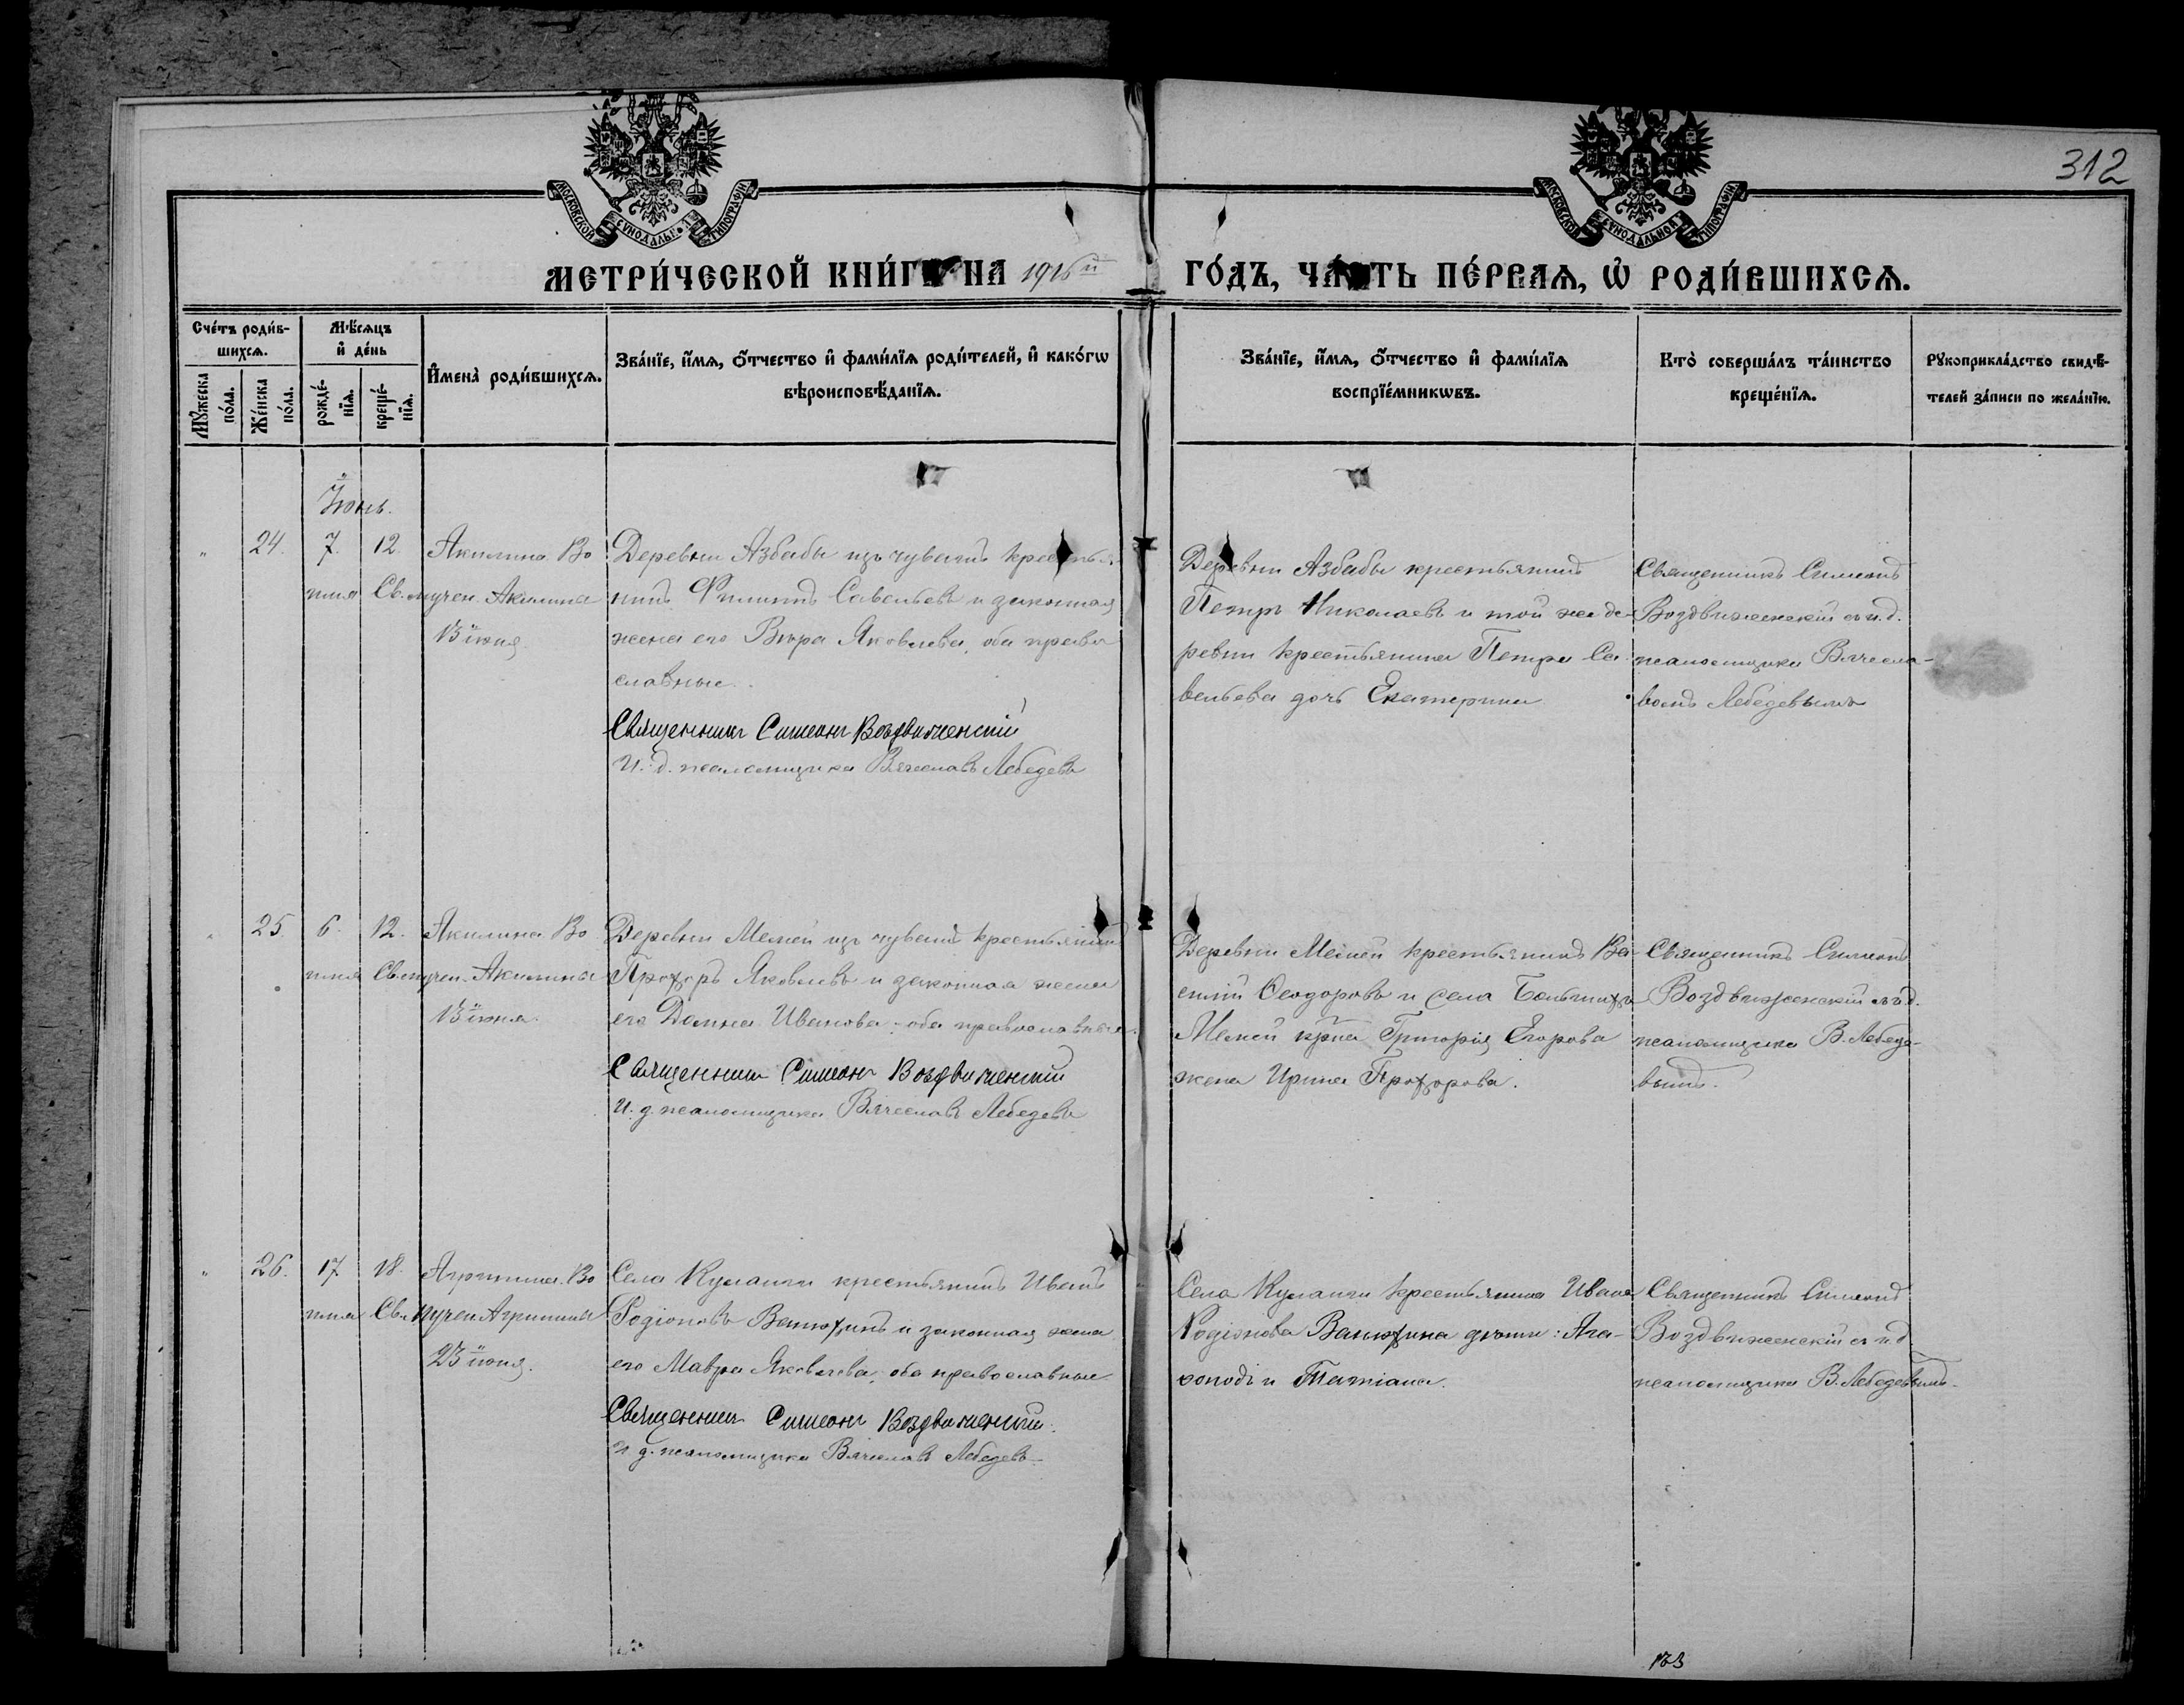 312
МОСКОВСКОЙ СѴНОДАЛЬНОЙ ТИПОГРАФІИ
МОСКОВСКОЙ СѴНОДАЛЬНОЙ ТИПОГРАФІИ
МЕТРИ́ЧЕСКОЙ КНИ́ГИ НА 1916й ГО́ДЪ, ЧА́СТЬ ПЕ́РВАЯ, Ѡ РОДИ́ВШИХСЯ.
Сче́тъ роди́в-
шихся.
Мѣ́сяцъ
и де́нь
Мꙋ́жеска по́ла.
Же́нска по́ла.
рожде́-
нїя.
креще́-
нїя.
Имена̀ роди́вшихся.
Зва́нїе, и́мя, о́тчество и фами́лїя роди́телей, и како́гѡ
вѣроисповѣ́данїя.
Зва́нїе, и́мя, о́тчество и фами́лїя
воспрїе́мникѡвъ.
Кто̀ соверша́лъ та́инство
креще́нїя.
Рꙋкоприкла́дство свидѣ́-
телей за́писи по жела́нїю.
Іюнь.
" 24. 7. 12. Акилина. Во
имя Св. мучен. Акилины
13 іюня.
Деревни Азбабы изъ чувашъ крестья-
нинъ Филиппъ Савельевъ и законная
жена его Вѣра Яковлева, оба право
славные.
Священник Симеон Воздвиженский
И. д. псаломщика Вячеславъ Лебедевъ
Деревни Азбабы крестьянинъ
Петръ Николаевъ и той же де-
ревни крестьянина Петра Са-
вельева дочь Екатерина
Священникъ Симеонъ
Воздвиженскій съ и. д.
псаломщика Вячесла-
вомъ Лебедевымъ
" 25 6. 12. Акилина. Во
имя Св. мучен. Акилины
13 іюня.
Деревни Мемей изъ чувашъ крестьянинъ
Прохоръ Яковлевъ и законная жена
его Домна Иванова, оба православные.
Священник Симеон Воздвиженский
И. д. псаломщика Вячеславъ Лебедевъ
Деревни Мемей крестьянинъ Ва-
силій Ѳеодоровъ и села Большихъ
Мемей кр-на Григорія Егорова
жена Ирина Прохорова.
Священникъ Симеонъ
Воздвиженскій съ и. д.
псаломщика В. Лебеде-
вымъ.
" 26. 17 18. Агриппина. Во
имя Св. мучен. Агриппины
23 іюня.
Села Куланги крестьянинъ Иванъ
Родіоновъ Ванюхинъ и законная жена
его Мавра Яковлева, оба православные
Священник Симеон Воздвиженский.
И. д. псаломщика Вячеславъ Лебедевъ
Села Куланги крестьянина Ивана
Родіонова Ванюхина дѣти: Ага-
ѳоподъ и Татіана.
Священникъ Симеонъ
Воздвиженскій съ и. д.
псаломщика В. Лебедевымъ.